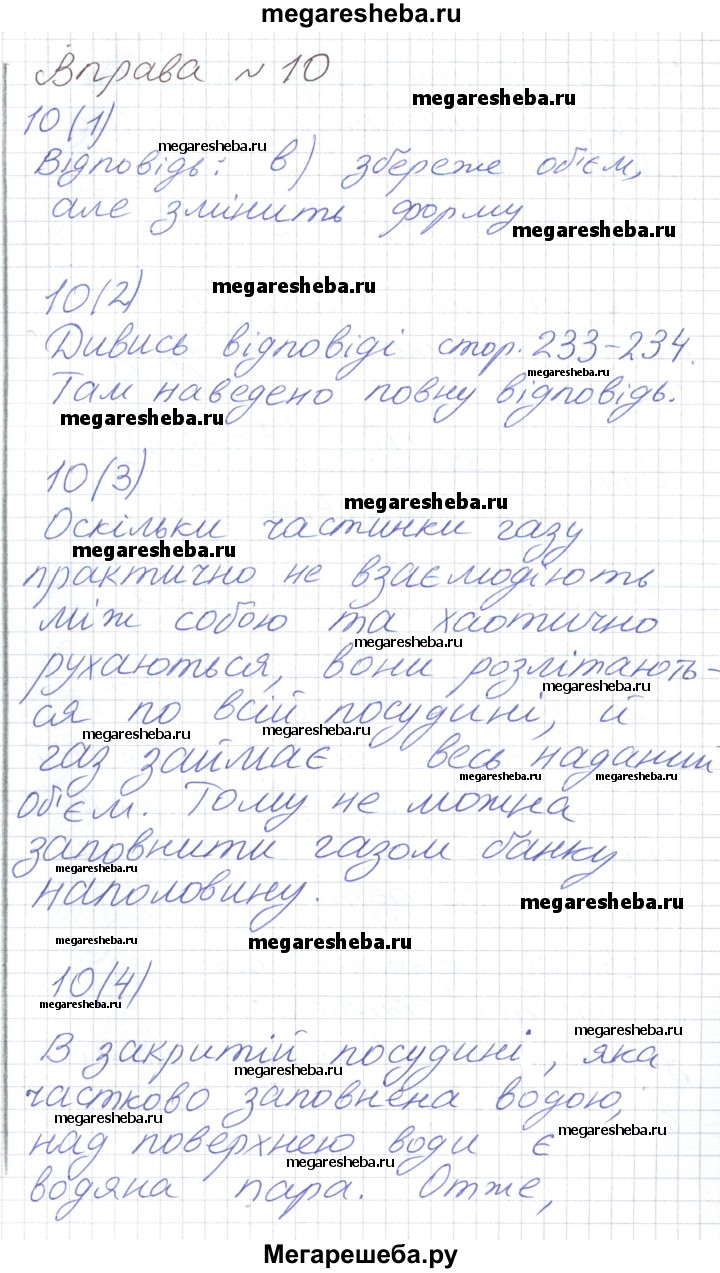 megaresheba.ru
Вправа № 10
megaresheba.ru
10(1)
megaresheba.ru
Відповідь: в) збереже об'єм,
але змінить форму
megaresheba.ru
10(2)
megaresheba.ru
Дивись відповіді стор. 233-234.
megaresheba.ru
Там наведено повну відповідь.
megaresheba.ru
10(3)
megaresheba.ru
Оскільки частинки газу
megaresheba.ru
практично не взаємодіють
між собою та хаотично
megaresheba.ru
рухаються, вони розлітають-
megaresheba.ru
ся по всій посудині, й
megaresheba.ru megaresheba.ru
газ займає весь наданий
megaresheba.ru megaresheba.ru
об'єм. Тому не можна
заповнити газом банку
megaresheba.ru
наполовину.
megaresheba.ru
megaresheba.ru megaresheba.ru
10(4)
megaresheba.ru
megaresheba.ru
В закритій посудині, яка
megaresheba.ru
частково заповнена водою,
megaresheba.ru megaresheba.ru
над поверхнею води є
megaresheba.ru
водяна пара. Отже,
Мегарешеба.ру